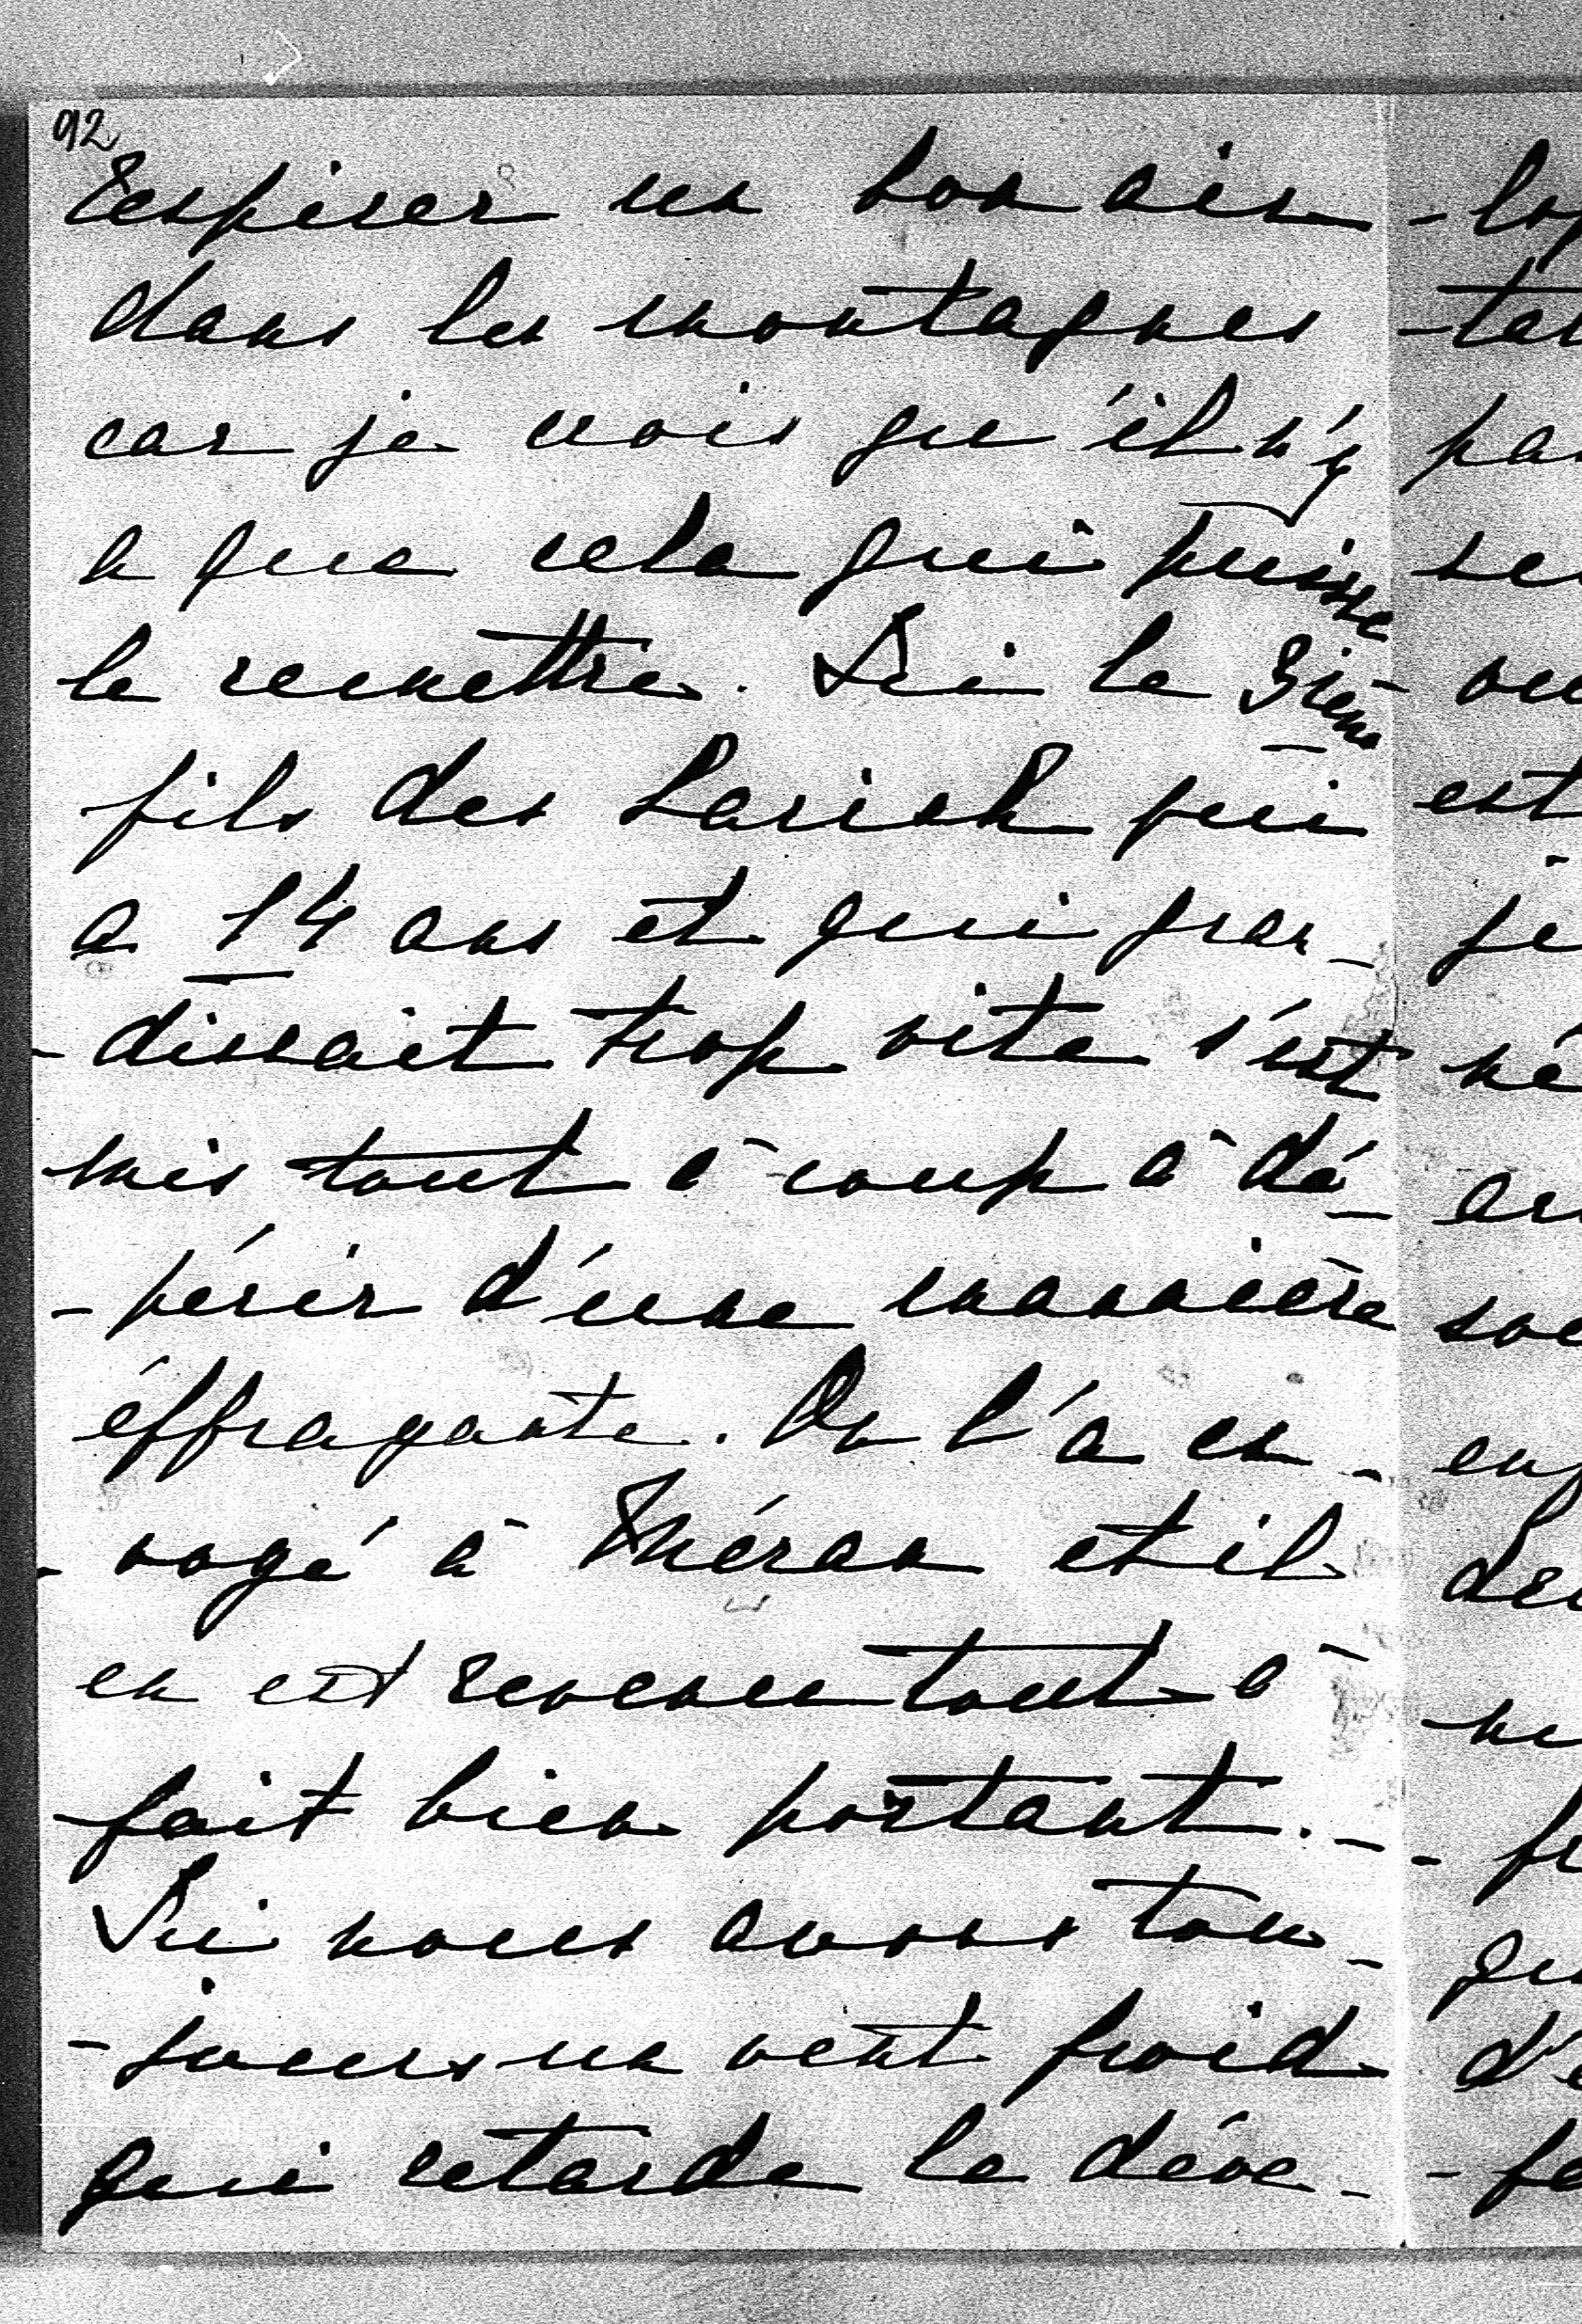 92
respirer un bon air
dans les montagnes
car je crois qu'il n'y
a que cela qui puisse
le remettre. Ici le 3ième
fils des Larisch qui
a 14 ans et qui gran-
-dissait trop vite s'est
mis tout à coup à dé-
-périr d'une manière
éffrayante. On l'a en-
-voyé à Méran et il
en est revenu tout à
fait bien portant. -
Ici nous avons tou-
-jours un vent froid
qui retarde le déve-